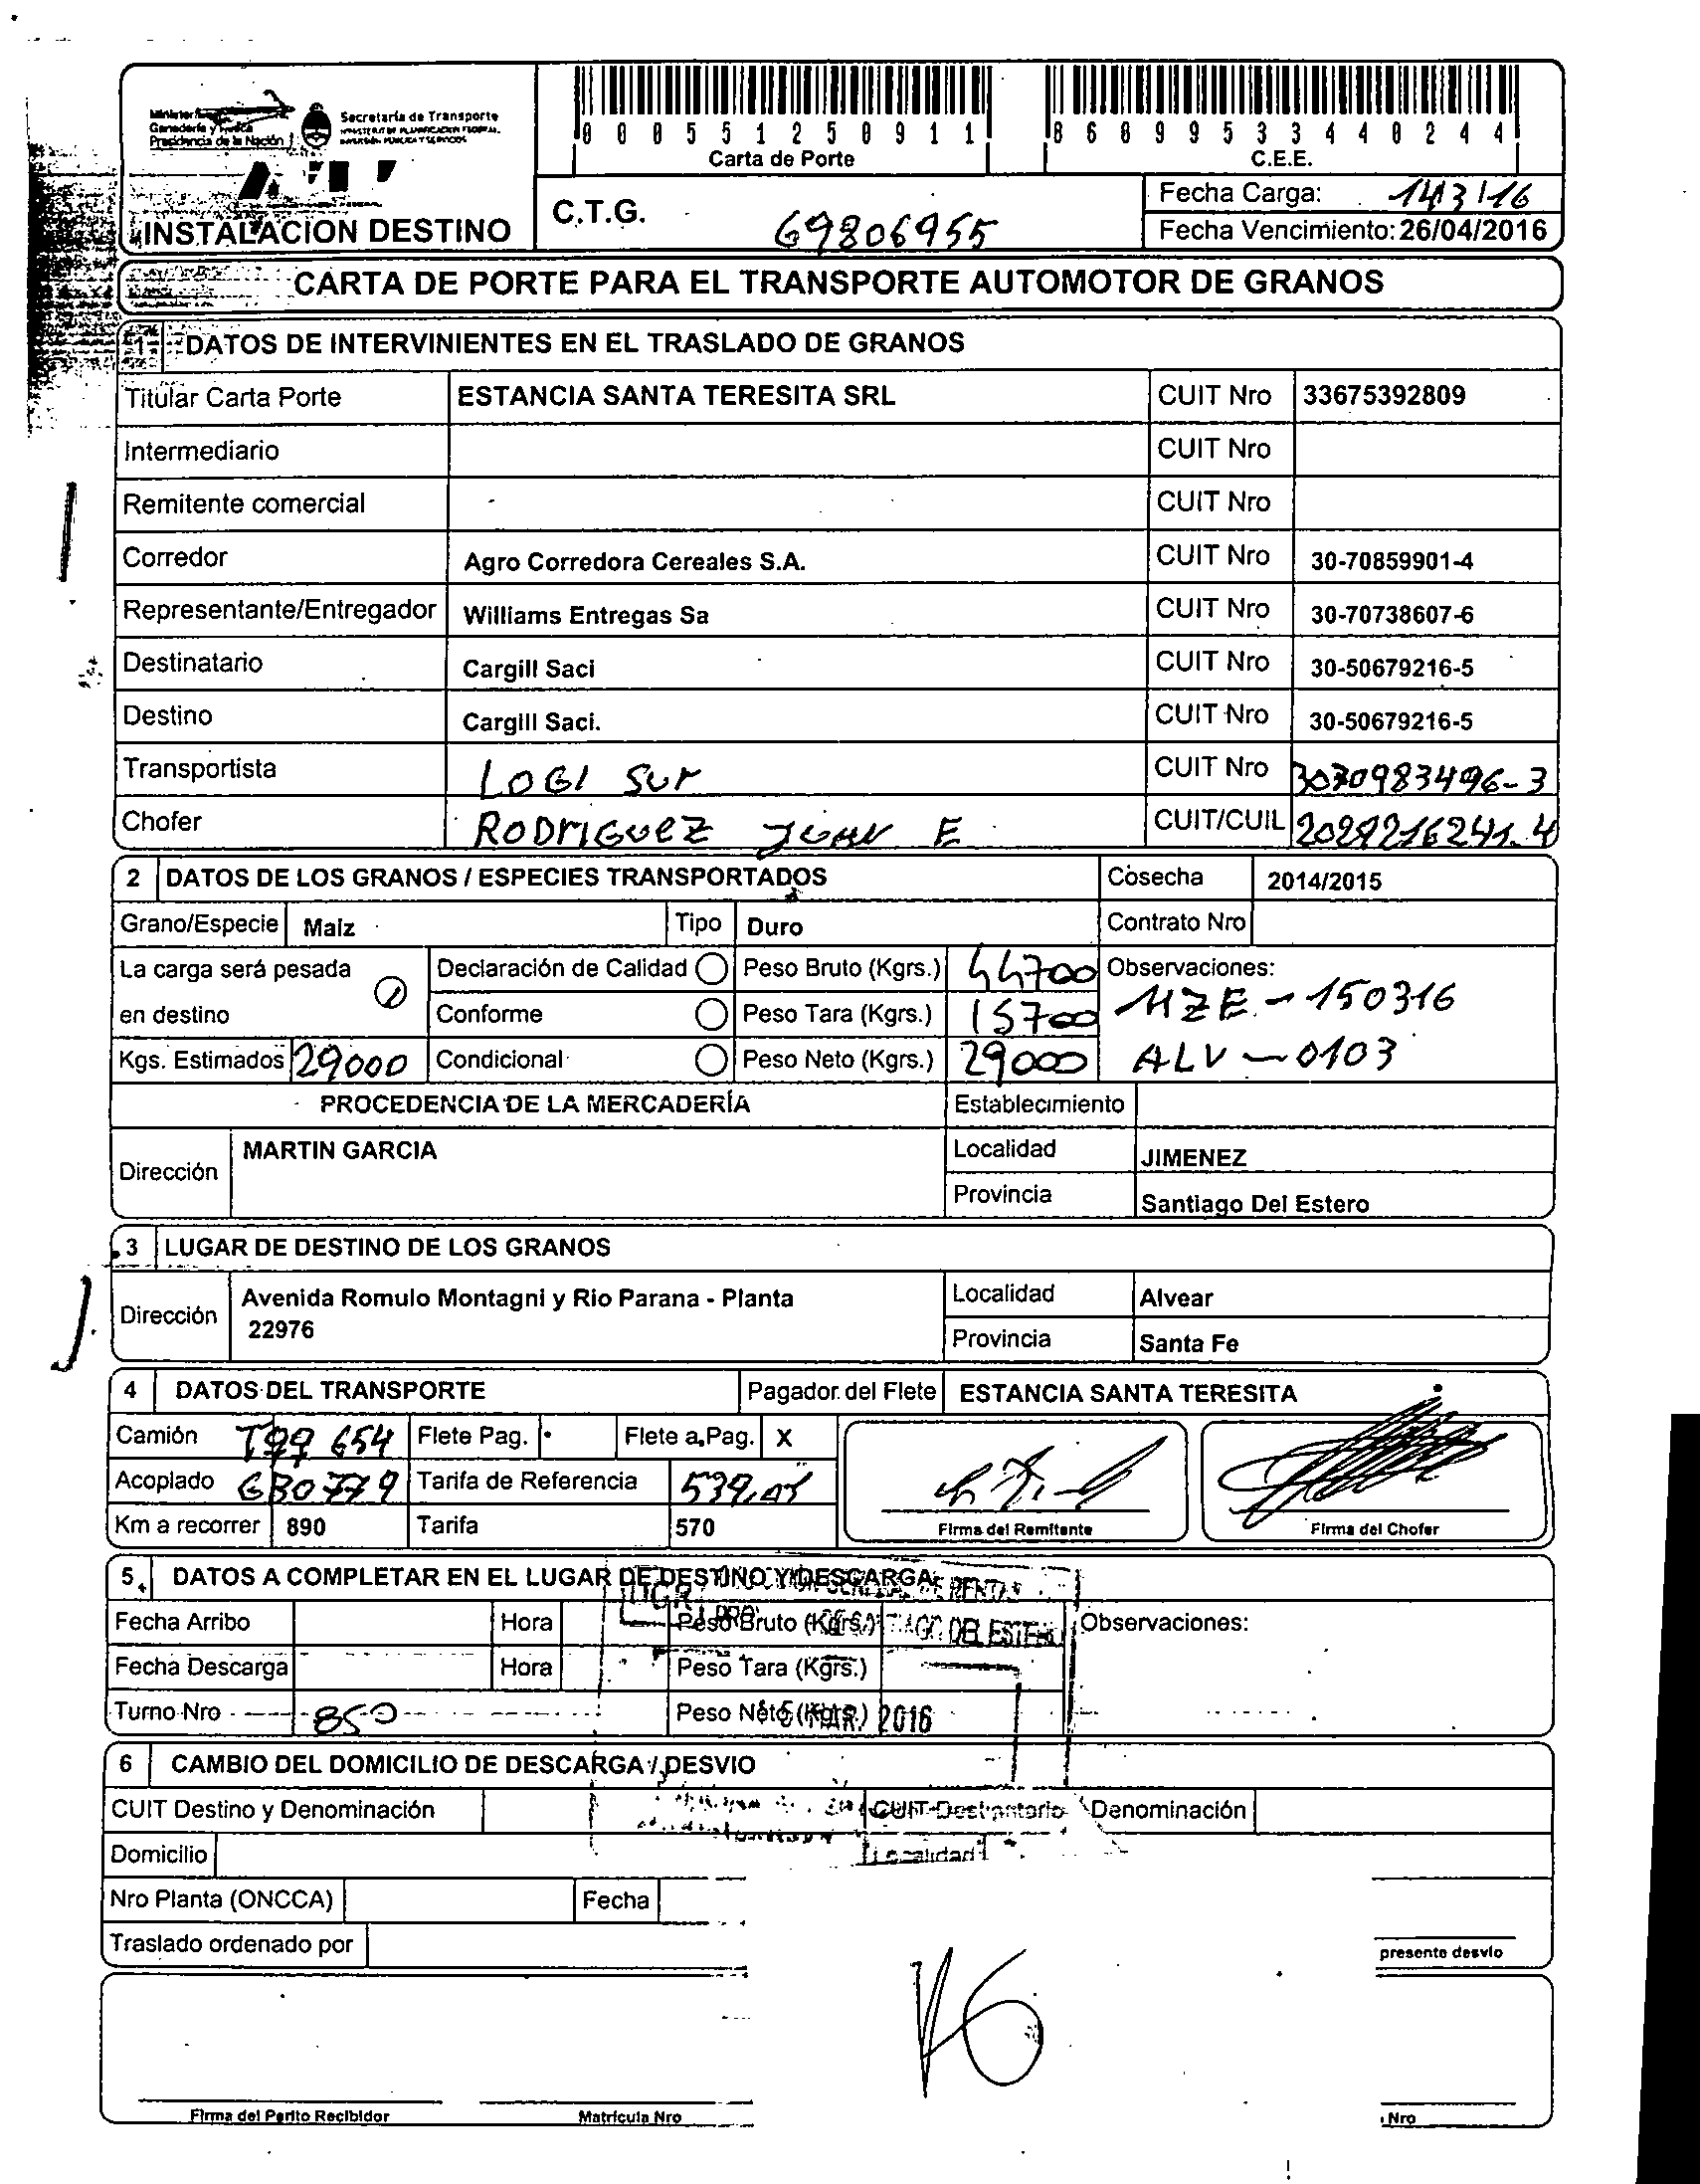 Secretaría de Transporte
Presidencia de la Nación
INSTALACION DESTINO
0 0 0 5 5 1 2 5 0 9 1 1
Carta de Porte
8 6 0 9 9 5 3 3 4 4 0 2 4 4
C.E.E.
C.T.G. 69806955
Fecha Carga: 14/3/16
Fecha Vencimiento: 26/04/2016
CARTA DE PORTE PARA EL TRANSPORTE AUTOMOTOR DE GRANOS
1 DATOS DE INTERVINIENTES EN EL TRASLADO DE GRANOS
Titular Carta Porte ESTANCIA SANTA TERESITA SRL CUIT Nro 33675392809
Intermediario CUIT Nro
Remitente comercial CUIT Nro
Corredor Agro Corredora Cereales S.A. CUIT Nro 30-70859901-4
Representante/Entregador Williams Entregas Sa CUIT Nro 30-70738607-6
Destinatario Cargill Saci CUIT Nro 30-50679216-5
Destino Cargill Saci. CUIT Nro 30-50679216-5
Transportista LOGI SUR CUIT Nro 3070983496-3
Chofer RODRIGUEZ JUAN E CUIT/CUIL
2 DATOS DE LOS GRANOS / ESPECIES TRANSPORTADOS Cosecha 2014/2015
Grano/Especie Maiz Tipo Duro Contrato Nro
La carga será pesada en destino Declaración de Calidad Peso Bruto (Kgrs.) 44700 Observaciones:
Conforme Peso Tara (Kgrs.) 15700 MZE - 150316
Kgs. Estimados 29000 Condicional Peso Neto (Kgrs.) 29000 ALV - 0103
PROCEDENCIA DE LA MERCADERÍA Establecimiento
Dirección MARTIN GARCIA Localidad JIMENEZ
Provincia Santiago Del Estero
3 LUGAR DE DESTINO DE LOS GRANOS
Dirección Avenida Romulo Montagni y Rio Parana - Planta Localidad Alvear
22976 Provincia Santa Fe
4 DATOS DEL TRANSPORTE Pagador del Flete ESTANCIA SANTA TERESITA
Camión TQQ 654 Flete Pag. Flete a Pag. X
Acoplado GBO779 Tarifa de Referencia 539,05
Km a recorrer 890 Tarifa 570 Firma del Remitente Firma del Chofer
5 DATOS A COMPLETAR EN EL LUGAR DE DESTINO Y DESCARGA
Fecha Arribo Hora Peso Bruto (Kgrs.) Observaciones:
Fecha Descarga Hora Peso Tara (Kgrs.)
Turno Nro 850 Peso Neto (Kgrs.)
RENTAS
DEL ESTERO
MAR. 2016
6 CAMBIO DEL DOMICILIO DE DESCARGA / DESVIO
CUIT Destino y Denominación CUIT Destinatario Denominación
Domicilio Localidad
Nro Planta (ONCCA) Fecha
Traslado ordenado por presente desvio
Firma del Perito Recibidor Matrícula Nro Nro